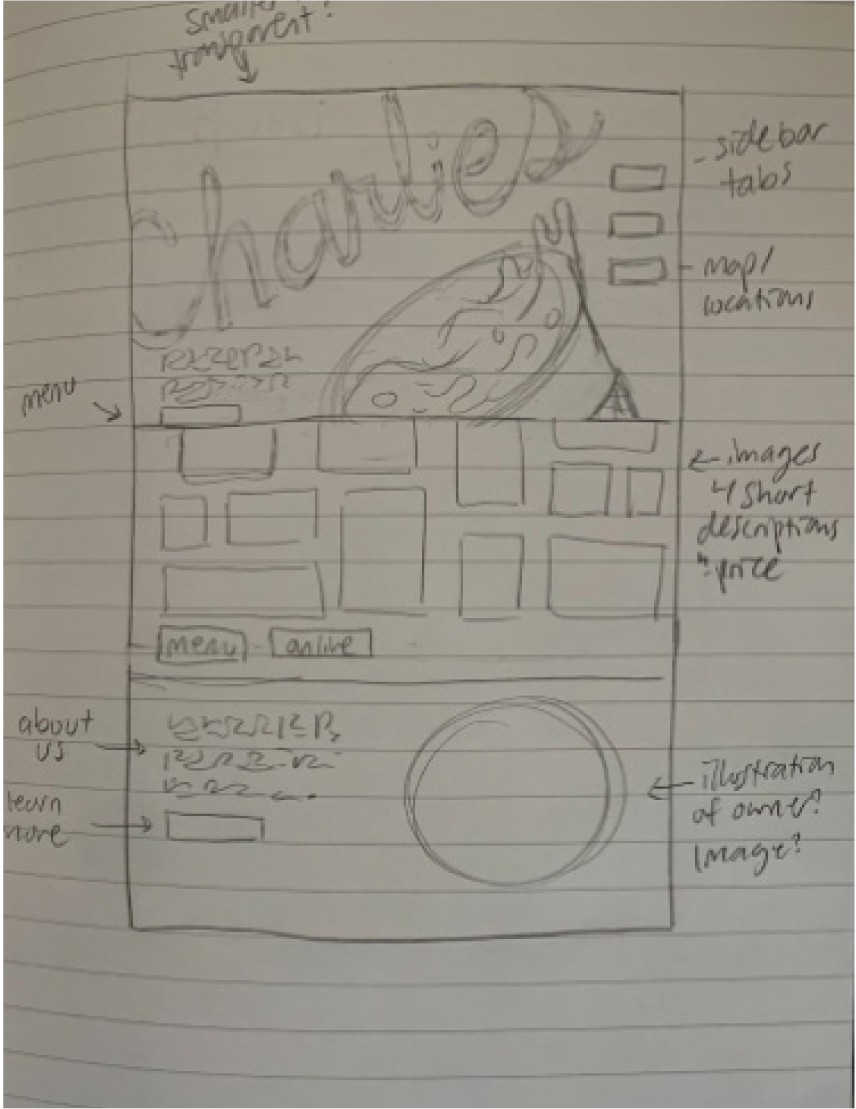 smaller
transparent?
Charlies
sidebar
tabs
map/
locations
menu
images
& short
descriptions
price
menu
online
about
us
learn
more
illustration
of owner?
Image?